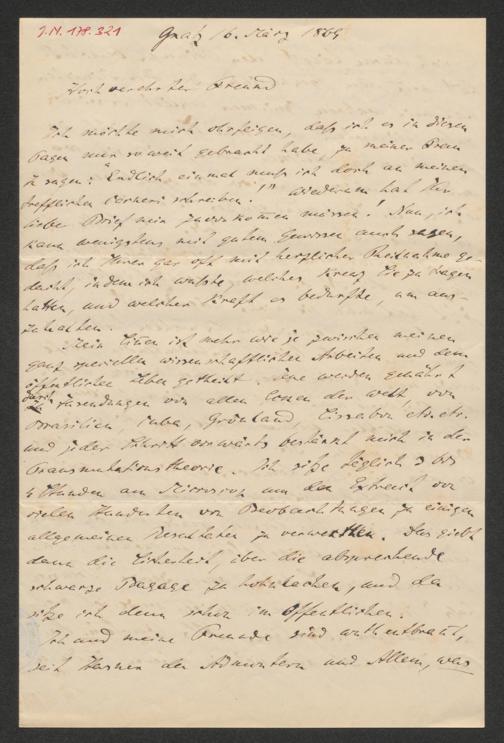 J.N. 178.321
Graz 16. März 1869
Hochverehrter Freund
Ich möchte mich ohrfeigen, daß ich es in diesen
Tagen nur so weit gebracht habe, zu meiner Frau
zu sagen: "Endlich einmal muß ich doch an meinen
trefflichen Carneri schreiben!" Wiederum hat Ihr
lieber Brief mir zuvorkommen müssen! Nun, ich
kann wenigstens mit gutem Gewissen auch sagen,
daß ich Ihrer gar oft mit herzlicher Theilnahme ge-
dacht, indem ich wußte, welches Kreuz Sie zu tragen
hatten, und welcher Kraft es bedurfte, um aus-
zuhalten.
Mein Leben ist mehr wie je zwischen meinen
ganz speciellen wissenschaftlichen Arbeiten und dem
öffentlichen Leben getheilt. Jene werden genährt
durch Zusendungen von allen Zonen der Welt, von
Brasilien, Cuba, Grönland, Lissabon etc. etc.
und jeder Schritt vorwärts bestärkt mich in der
Transmutationstheorie. Ich sitze täglich 3 bis
4 Stunden am Microscop um den Extract von
vielen Hunderten von Beobachtungen zu einigen
allgemeinen Resultaten zu verwerthen. Das giebt
dann die Sicherheit, über die absprechende
schwarze Bagage zu hohnlachen, und da
sitze ich denn schon im Öffentlichen.
Ich und meine Freunde sind
seit der und Allem, was